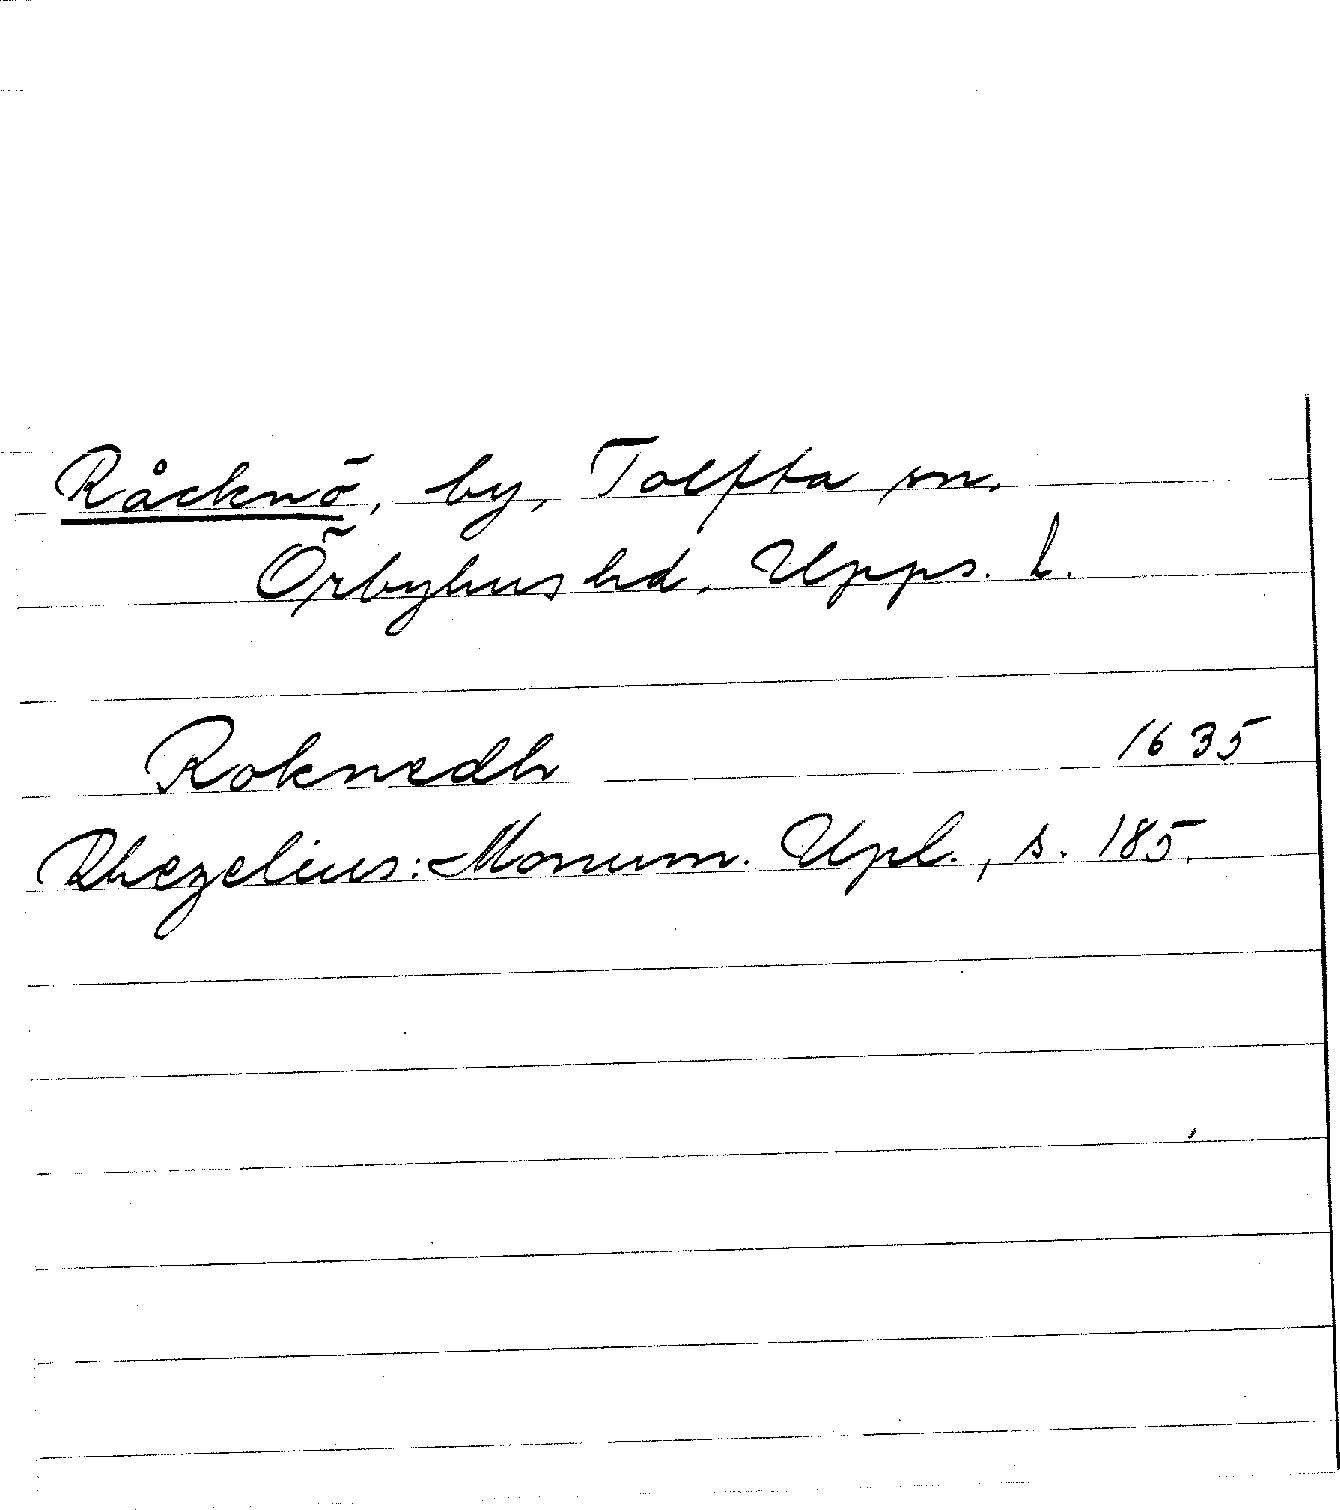 Råcknö, by, Tolfta sn.
Örbyhus hd, Upps. l.
Roknedh 1635
Rhezelius: Monum. Upl., s. 185.